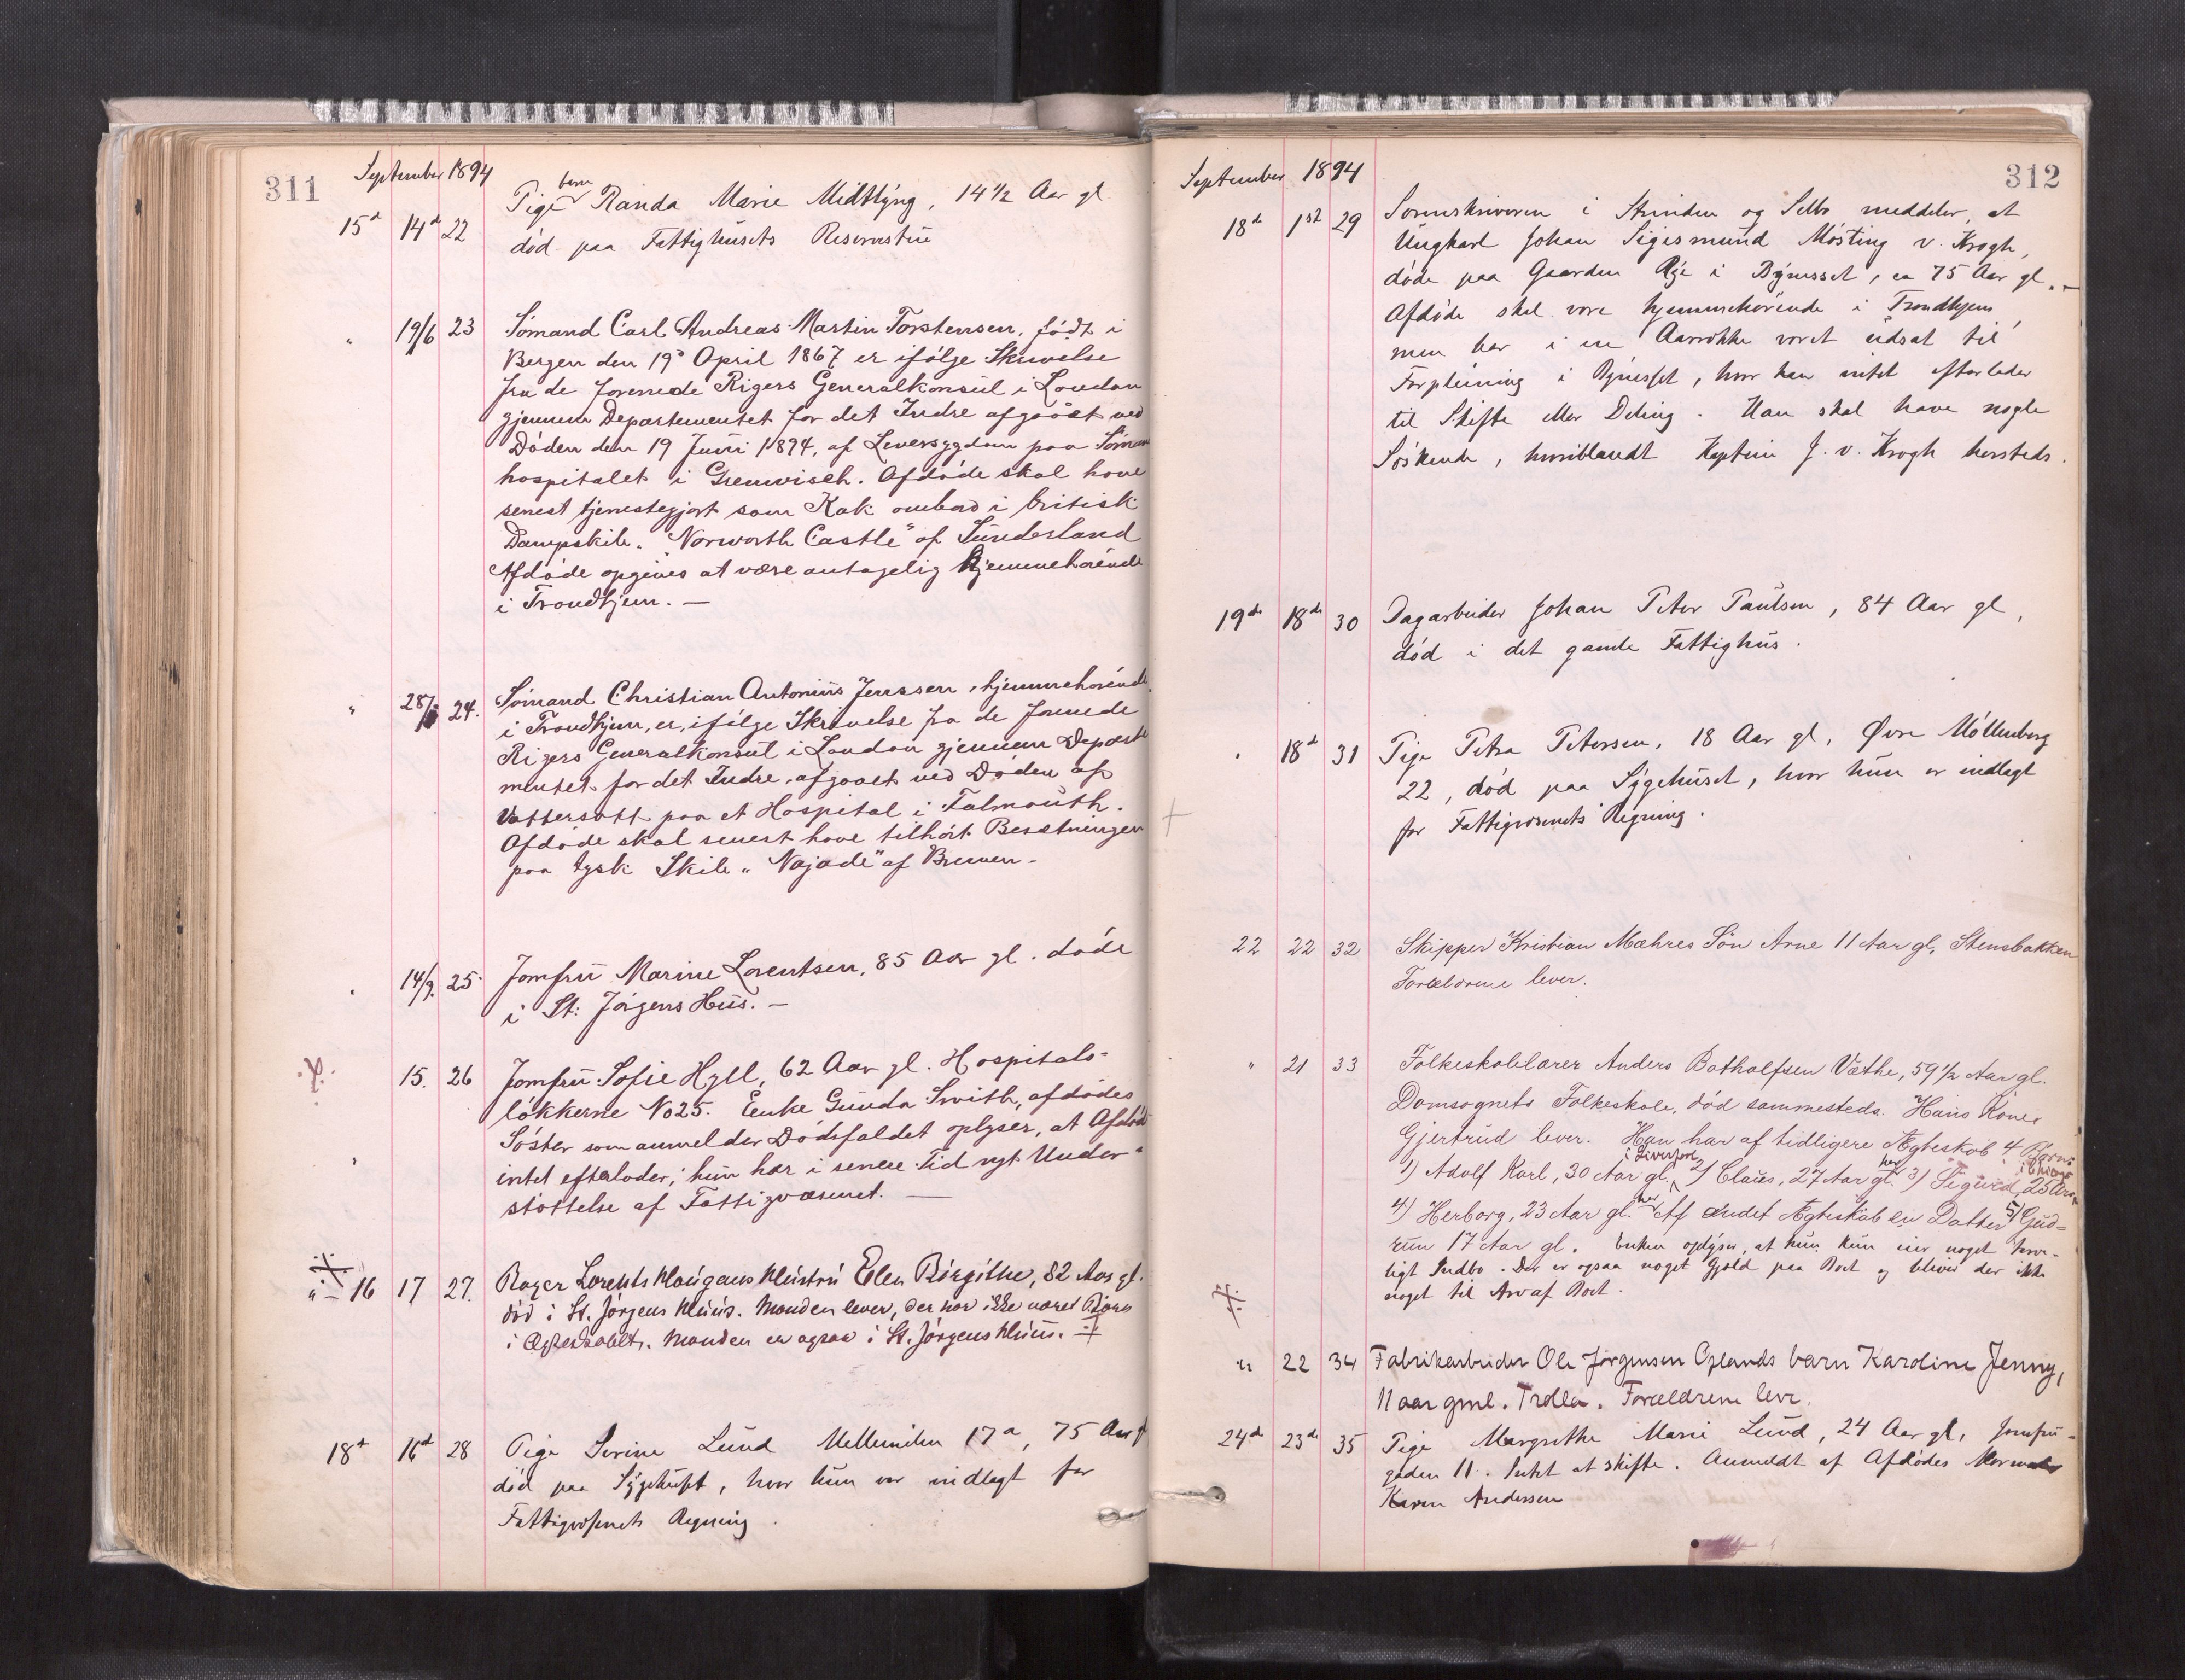 311
September 1894
15d 14d 22 Pigebarn Randa Marie Midtlyng, 14 1/2 Aar gl
død paa Fattighusets Reservestue
" 19/6 23 Sømand Carl Andreas Martin Torstensen, født i
Bergen den 19de April 1867 er ifølge Skrivelse
fra de forenede Rigers Generalkonsul i London
gjennem Departementet for det Indre afgaaet ved
Døden den 19 Juni 1894, af Leversygdom paa Sømands
hospitalet i Greenwich. Afdøde skal have
senest tjenestegjort som Kok ombord i britisk
Dampskib "Norworth Castle" af Sunderland
Afdøde opgives at være antagelig hjemmehørende
i Trondhjem. —
" 24. Sømand Christian Antonius Jenssen, hjemmehørende
i Trondhjem, er, ifølge Skrivelse fra de forenede
Rigers Generalkonsul i London gjennem Departe
mentet for det Indre, afgaaet ved Døden af
Vattersott paa et Hospital i Falmouth.
Afdøde skal senest have tilhørt Besætningen
paa tysk Skib "Najade" af Bremen —
" 14/9. 25. Jomfru Marine Lorentsen, 85 Aar gl. døde
i St: Jørgens Hus. —
15. 26 Jomfru Sofie Hyll, 62 Aar gl. Hospitals-
løkkerne No 25. Enke Gunda Smith, afdødes
Søster som anmelder Dødsfaldet oplyser, at Afdøde
intet efterlader; hun har i senere Tid nyt Under-
støttelse af Fattigvæsenet. —
" — 16 17 27. Bager Lorents Haugans Hustru Elen Birgithe, 82 Aar gl.
død i St. Jørgens Huus. Manden lever, der har ikke været Børn
i Ægteskabet. Manden er ogsaa i St. Jørgens Huus.
18d 16d 28 Pige Serine Lund Mellemilen 17a, 75 Aar gl
død paa Sygehuset, hvor hun var indlagt for
Fattigvæsenets Regning.
312
September 1894
18d 1st 29 Sorenskriveren i Strinden og Selbo meddeler, at
Ungkarl Johan Sigismund Møsting v. Krogh,
døde paa Gaarden Rye i Bynesset, ca 75 Aar gl. —
Afdøde skal være hjemmehørende i Trondhjem,
men har i en Aarrække været udsat til
Forpleining i Bynesset, hvor han intet efterlader
til Skifte eller Deling. Han skal have nogle
Søskende, hvoriblandt Kaptein J. v. Krogh hersteds.
19de 18de 30 Dagarbeider Johan Peter Paulsen, 84 Aar gl,
død i det gamle Fattighus.
" 18d 31 Pige Petra Petersen, 18 Aar gl, Øvre Møllenberg
22, død paa Sygehuset, hvor hun er indlagt
for Fattigvæsenets Regning.
22 22 32 Skipper Kristian Mæhres Søn Arne 11 Aar gl, Stensbakken
Forældrene lever.
" 21 33 Folkeskolelærer Anders Botholfsen Væthe, 59 1/2 Aar gl.
Domsognets Folkeskole, død sammesteds. Hans Kone
Gjertrud lever. Han har af tidligere Ægteskab 4 Børn:
1) Adolf Karl, 30 Aar gl. i Liverpool, 2) Claus, 27 Aar gl. her 3) Sigurd, 25 Aar i Chicago
4) Herborg, 23 Aar gl. her Af andet Ægteskab en Datter 5) Gud-
run 17 Aar gl. Enken oplyser, at hun kun eier noget tarve-
ligt Indbo. Der er ogsaa noget Gjæld paa Boet og bliver der ikke
noget til Arv af Boet.
" 22 34 Fabrikarbeider Ole Jørgensen Oplands barn Karoline Jenny,
11 aar gml. Trolla. Forældrene leve.
24d 23d 35 Pige Margrethe Marie Lund, 24 Aar gl, Jomfru-
gaden 11. Intet at skifte. Anmeldt af Afdødes Mor
Karen Andersen